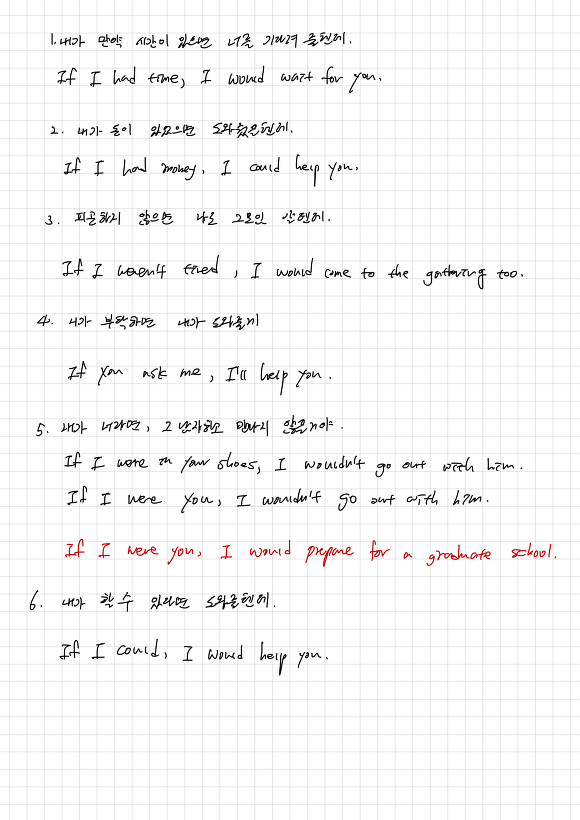 1. 내가 만약 시간이 있으면 너를 기다려 줄텐데.
If I had time, I would wait for you.
2. 내가 돈이 있었으면 도와줬을텐데.
If I had money, I could help you.
3. 피곤하지 않으면 나도 그모임 갈텐데.
If I weren't tired, I would come to the gathering too.
4. 네가 부탁하면 내가 도와줄게
If you ask me, I'll help you.
5. 내가 너라면, 그 남자하고 만나지 않을거야.
If I were in your shoes, I wouldn't go out with him.
If I were you, I wouldn't go out with him.
If I were you, I would prepare for a graduate school.
6. 내가 할 수 있다면 도와줄텐데.
If I could, I would help you.